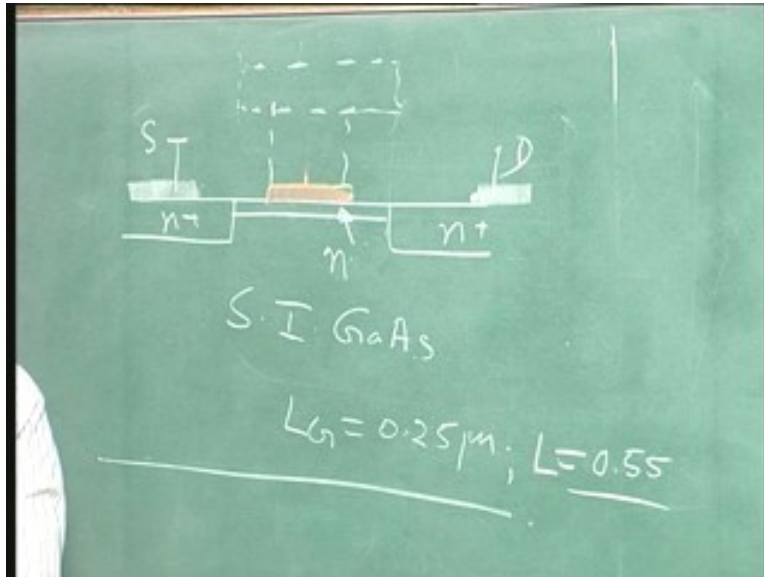 S D
n+ n n+
S.I. GaAs
L_G = 0.25 μm; L = 0.55